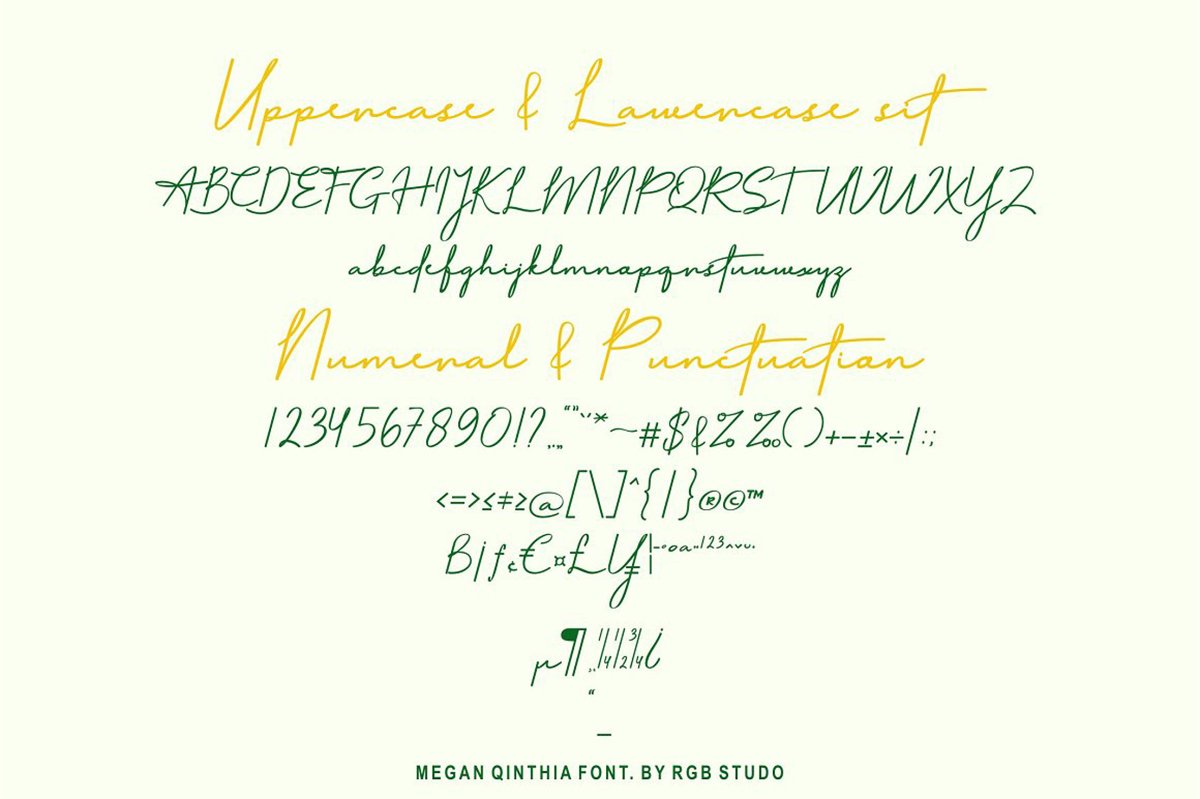 Uppercase & Lowercase sit
ABCDEFGHIJKLMNPQRSTUVWXYZ
abcdefghijklmnopqrstuvwxyz
Numeral & Punctuation
1234567890!? ‚.„ “”‘’*~#$&%‰()+−±×÷/:;
<=>≤≠≥@[\]^{|}®©™
ßƒ¢€¤£¥¦ªº¹²³
µ¶¼½¾¿
“
–
MEGAN QINTHIA FONT. BY RGB STUDO